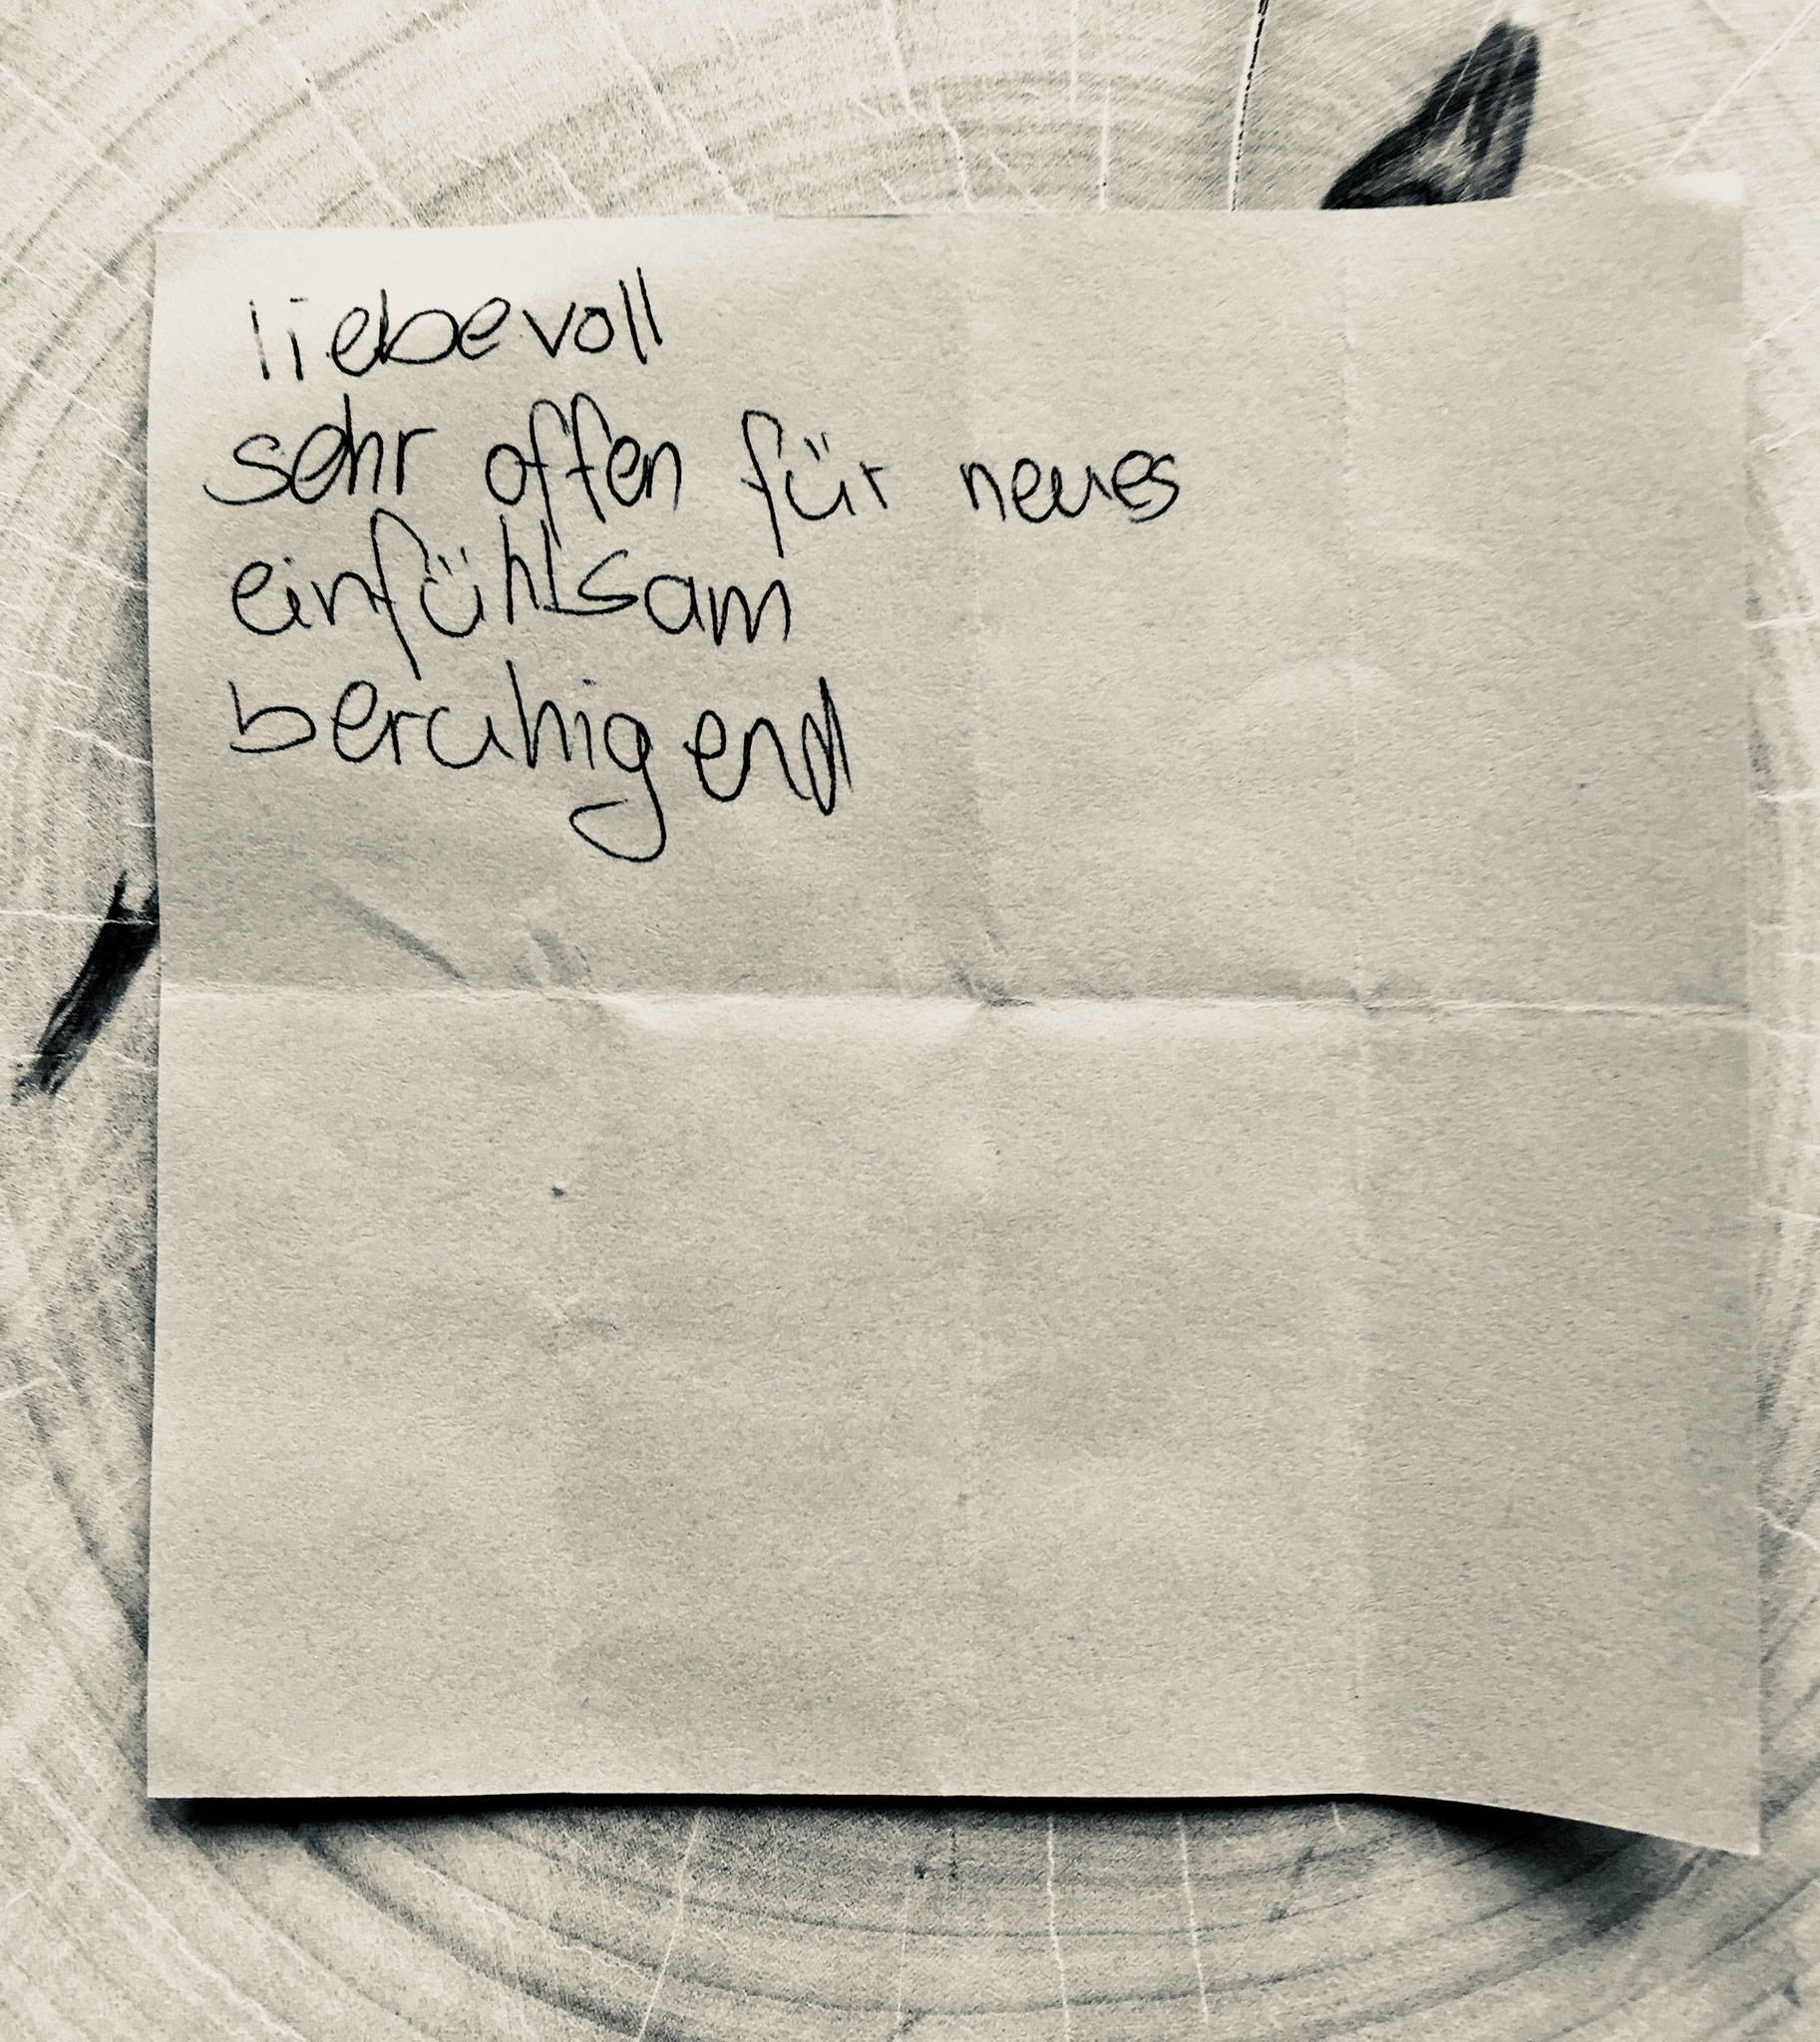 liebevoll
sehr offen für neues
einfühlsam
beruhigend